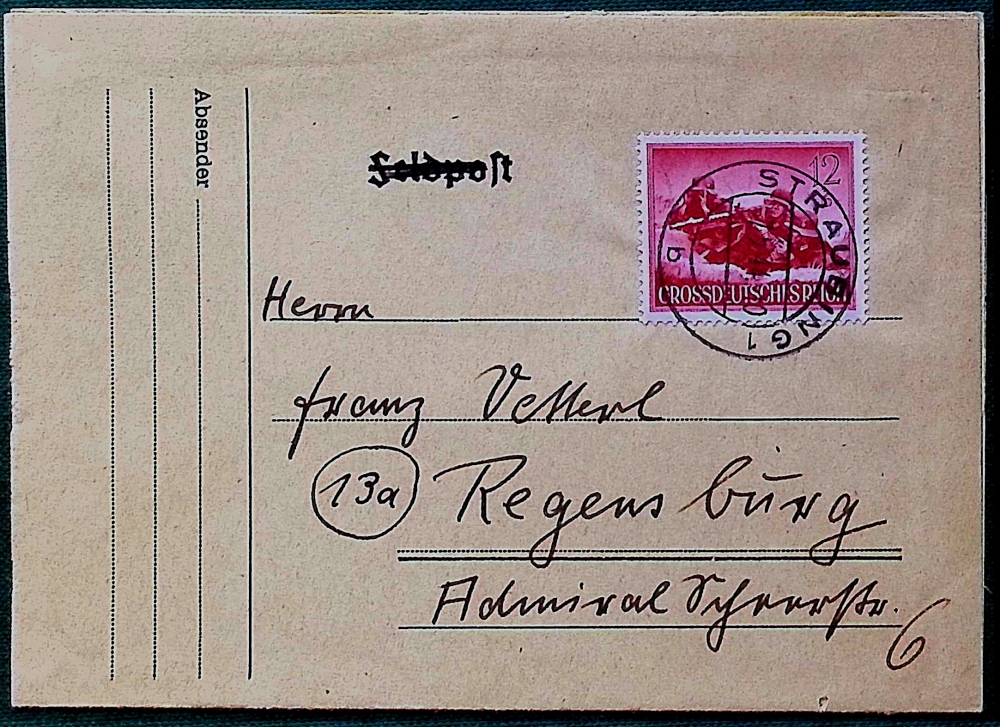 Absender
Feldpost
12
GROSSDEUTSCHES REICH
STRAUBING 1
Herrn
Franz Vetterl
13a Regensburg
Admiral Scheerstr.
6